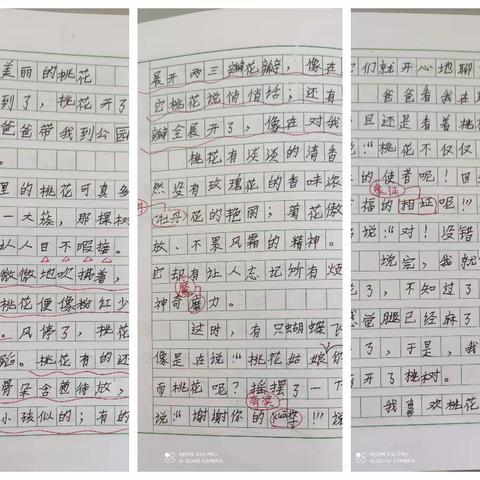 美丽的桃花
到了，桃花开了
爸爸带我到公园
里的桃花可真多
一大簇，那棵树
让人目不暇接。
微微地吹拂着，
桃花便像粉红少
。风停了，桃花
蹈。桃花有的还
骨朵含苞待放，
小孩似的；有的
展开两三瓣花瓣，像在
它桃花说悄悄话；还有
瓣全展开了，像在对我
桃花有淡淡的清香
然没有玫瑰花的香味浓
牡丹花的艳丽；菊花傲
放、不畏风霜的精神。
它却有让人忘记所有烦
魔
神奇魔力。
这时，有只蝴蝶飞
像是在说“桃花姑娘你
而桃花呢？摇摆了一下
说：“谢谢你的
夸奖
！”说
了们就开心地聊
爸爸看我在
旦还是看着桃花
说：“桃花不仅仅
的使者呢！因
象征
福的相征呢！”
说：“对！没错
说完，我就
了，不知过了
感觉腿已经麻了
了，于是，我
离开了桃树。
我喜欢桃花
REDMI K30 PRO
AI QUAD CAMERA
REDMI K30 PRO
AI QUAD CAMERA
REDMI K30 PRO
AI QUAD CAMERA